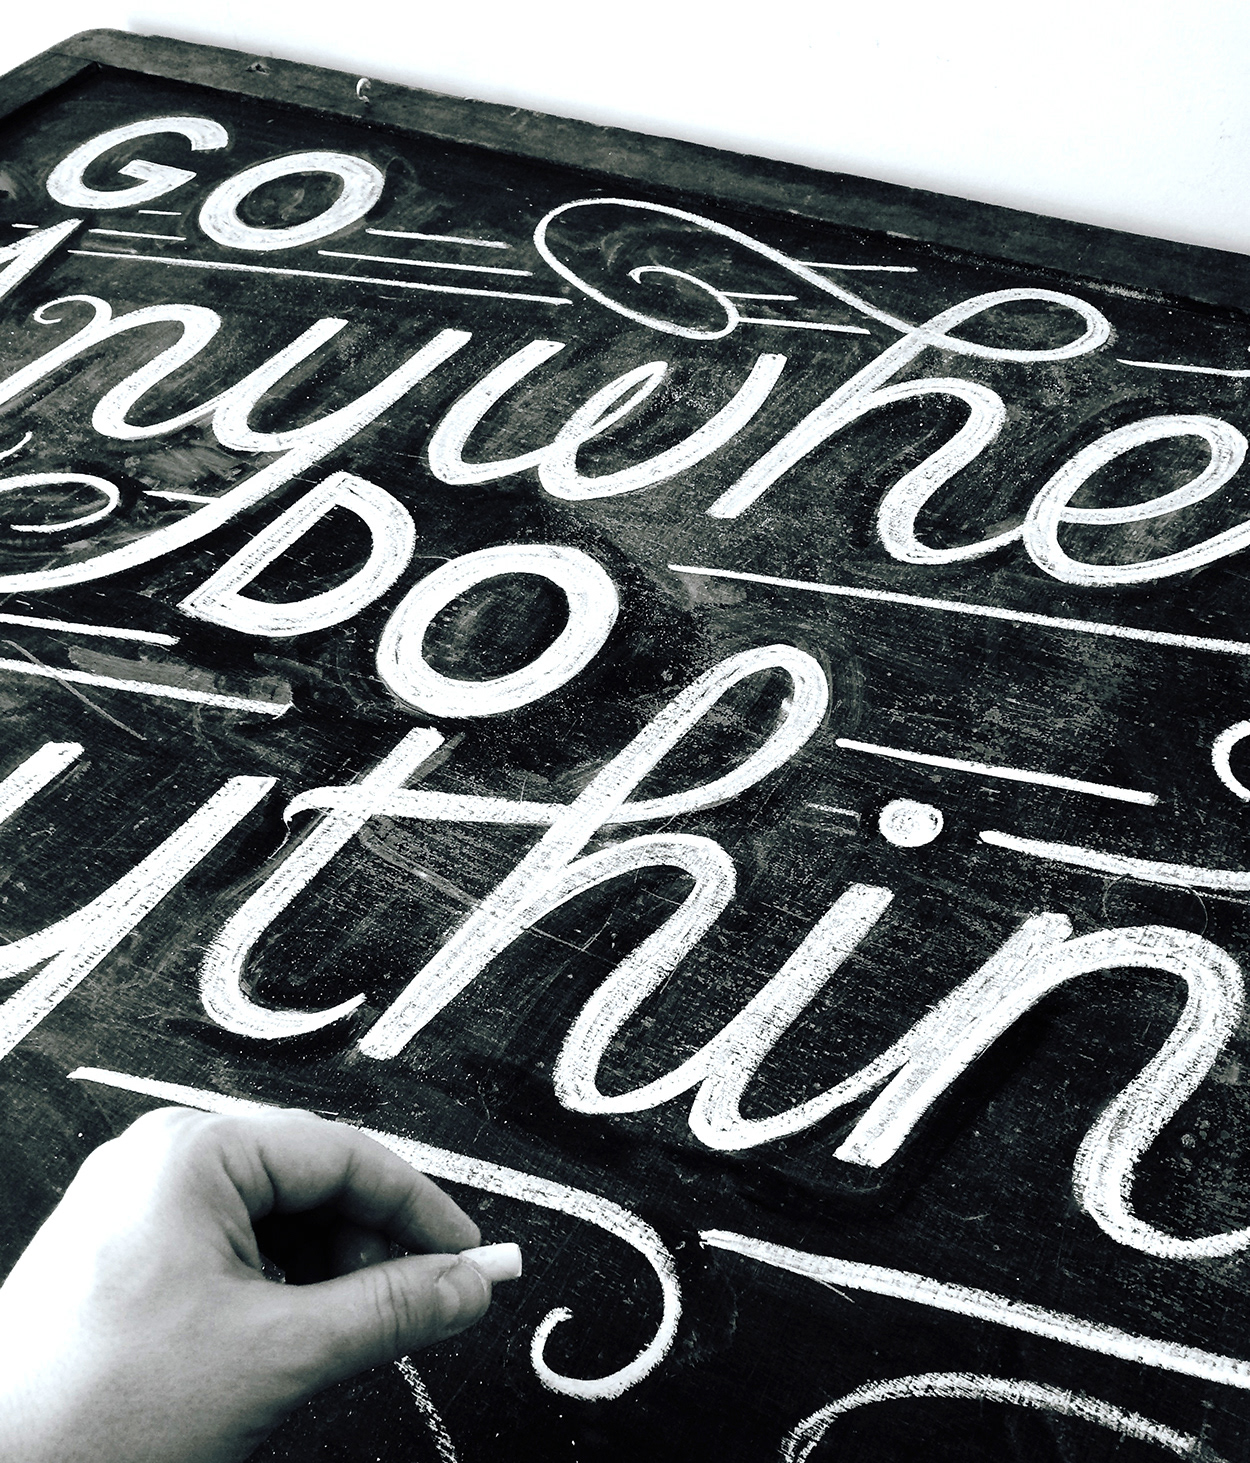 GO
Anywhe
DO
ythin